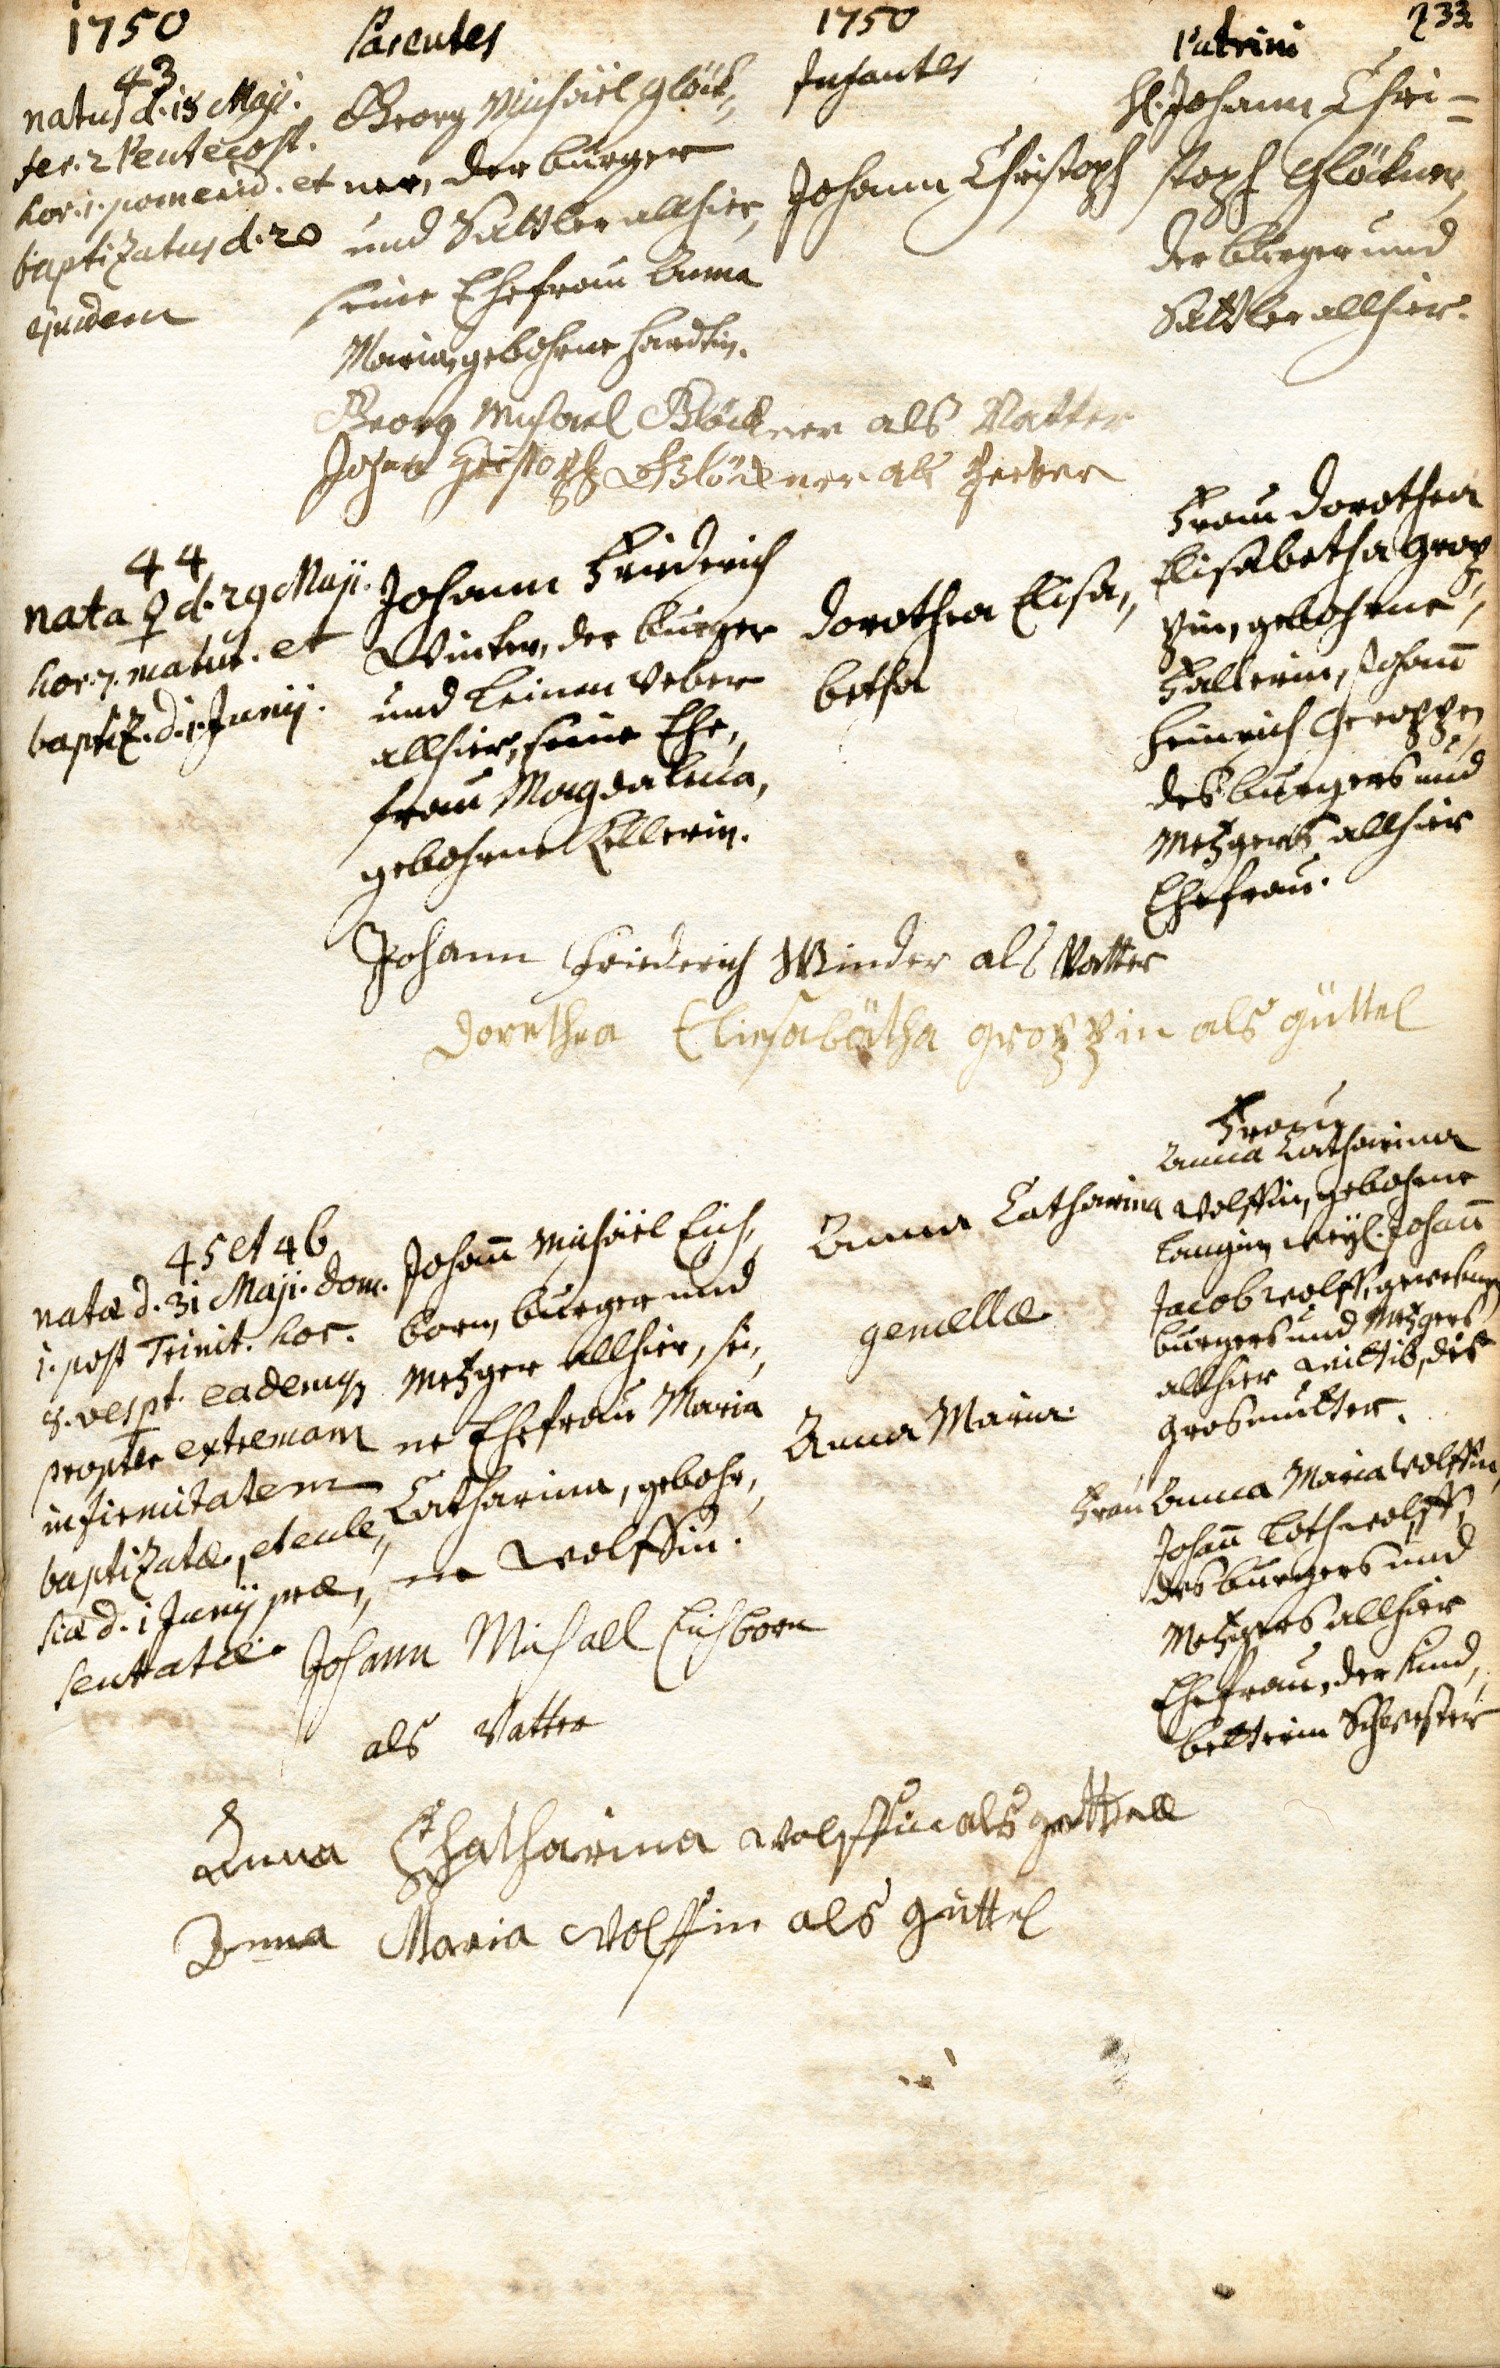 1750 Parentes 1750 Infantes Patrini 233
43
natus d. 18 Maji.
fer. 2 Pentecost.
hor. 1. pomerid. et
baptizatus d. 20
ejusdem
Georg Michäel Glöck,,
ner, der burger
und Sattler allhier,
seine Ehefrau Anna
Maria, gebohrne Hardtin.
Johann Christoph
H. Johann Chri-
stoph Glöckner,
der burger und
Sattler allhier.
Georg Michael Glöckner als Vatter
Johan Christoph Glöckner als
44
nata ♀ d. 29 Maji.
hor. 7. matut. et
baptiz. d. 1. Junij.
Johann Friederich
Winter, der burger
und Leinenweber
allhier, seine Ehe,,
frau Magdalena,
gebohrne Kellerin.
Dorothea Elisa,,
betha
Frau Dorothea
Elisabetha Grop,,
pin, gebohrne
Hallerin, Johann
Heinrich Groppen,
des burgers und
Metzgers allhier
Ehefrau.
Johann Friederich Winder als Vatter
Dorethea Eliesabätha groppin als güttel
45 et 46
natæ d. 31 Maji. dom.
1. post Trinit. hor.
8. vespt. eademq
propter extremam
infirmitatem
baptizatæ, et eccle,,
siæ d. 1 Junij præ,,
sentatæ.
Johann Michäel Eich,,
born, burger und
Metzger allhier, sei,,
ne Ehefrau Maria
Catharina, gebohr,,
ne Wolffin.
Anna Catharina
gemellæ
Anna Maria
Frau
Anna Catharina
Wolffin, gebohrne
Langin, weyl. Johann
Jacob Wolff, gewesenen
burgers und Metzgers
allhier Wittib, die
Grosmutter.
Frau Anna Maria Wolffin,
Johann Loth Wolff,
des burgers und
Metzgers allhier
Ehefrau, der Kind,,
betterin Schwester
Johann Michael Eichborn
als Vatter
Anna Chatharina Wolffin als
Anna Maria Wolffin als güttel